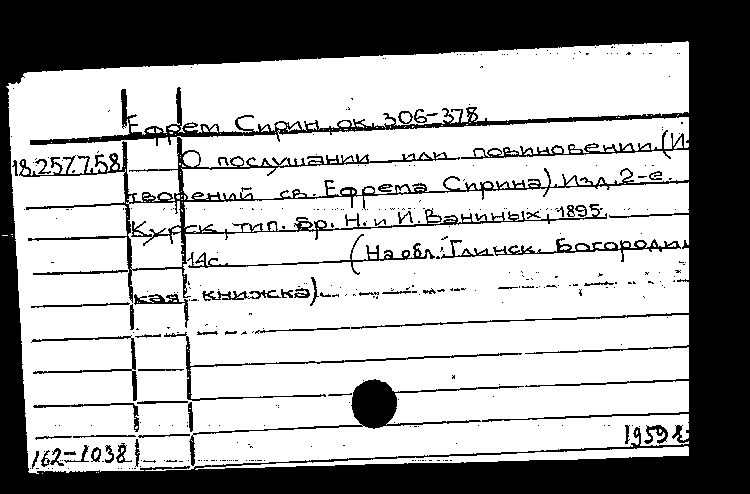 Ефрем Сирин, ок. 306-378.
18.257.7.58 О послушании или повиновении. (Из
творений св. Ефрема Сирина). Изд. 2-е.
Курск, тип. бр. Н. и И. Ваниных, 1895.
14с. (На обл.: Глинск. Богородиц
кая книжка).
162-1038 1959 г